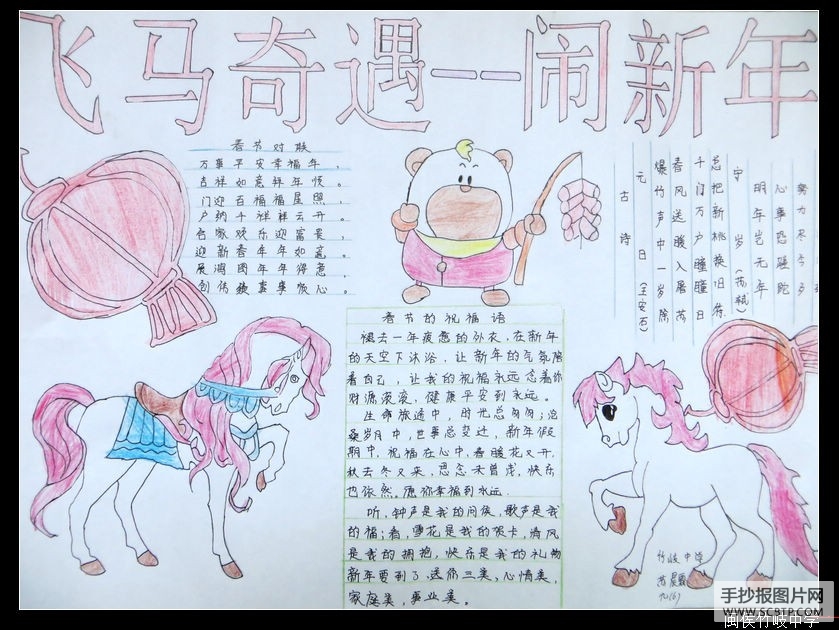 飞马奇遇——闹新年
春节对联
万事平安幸福年，
吉祥如意鲜年悦。
门迎百福福星照，
户纳千祥祥云开。
名家欢乐迎富贵，
迎新春年年如意。
展鸿图年年得意，
事事顺心。
古诗
元日(王安石)
爆竹声中一岁除
春风送暖入屠苏
千门万户瞳瞳日
总把新桃换旧符
守岁(苏轼)
明年岂无年
心事恐蹉跎
努力尽今夕
春节的祝福语
褪去一年疲惫的外衣，在新年
的天空下沐浴，让新年的气氛陪
着自己，让我的祝福永远念着你
财源滚滚，健康平安到永远。
生命旅途中，时光总匆匆；沧
桑岁月中，世事总变迁，新年假
期中，祝福在心中，春暖花又开，
秋去冬又来，思念未曾浅，快乐
也依然。愿你幸福到永远。
听，钟声是我的问候，歌声是我
的福；看，雪花是我的贺卡，清风
是我的拥抱，快乐是我的礼物
新年要到了，送你三美，心情美，
家庭美，事业美。
竹岐中学
九(6)
手抄报图片网
www.SCBTP.COM
闽侯竹岐中学